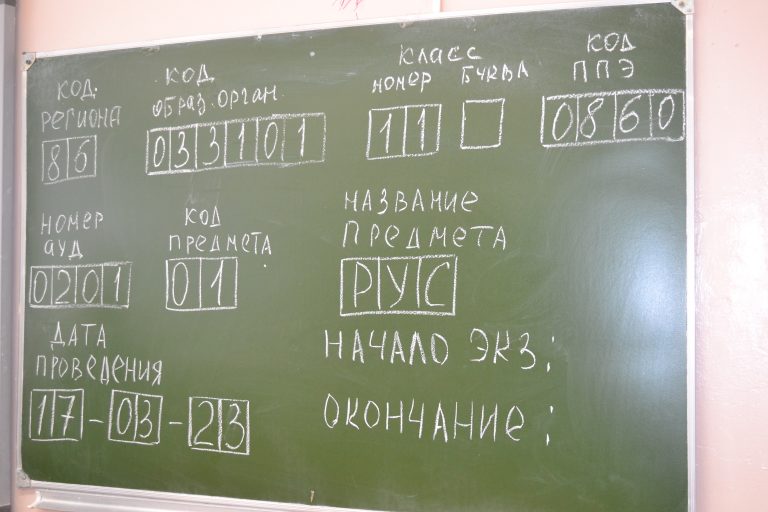 КОД
РЕГИОНА
86
КОД
ОБРАЗ.ОРГАН.
033101
КЛАСС
НОМЕР БУКВА
11
КОД
ППЭ
0860
НОМЕР
АУД
0201
КОД
ПРЕДМЕТА
01
НАЗВАНИЕ
ПРЕДМЕТА
РУС
ДАТА
ПРОВЕДЕНИЯ
17-03-23
НАЧАЛО ЭКЗ:
ОКОНЧАНИЕ: